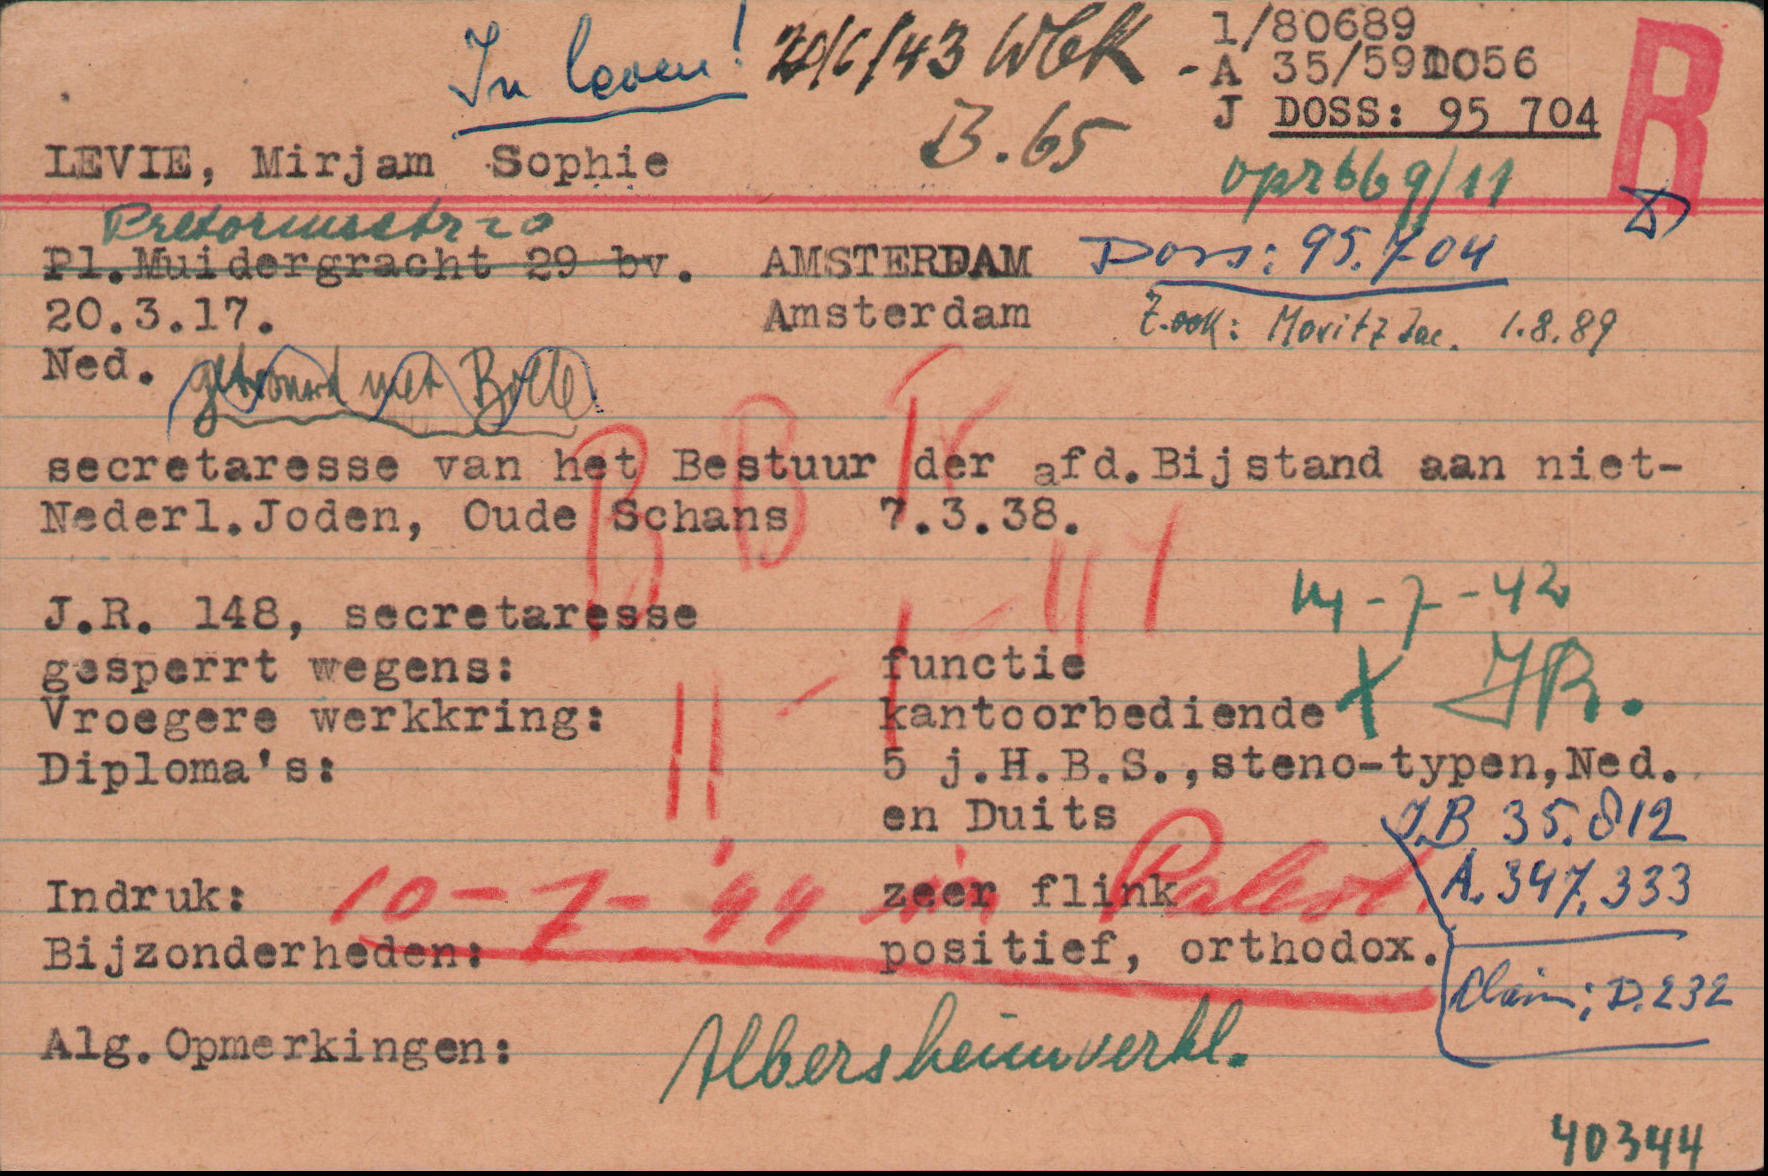 In leven! 20/6/43 WbK
1/80689
- A 35/59 1056
J DOSS: 95 704
R
B. 65
LEVIE, Mirjam Sophie
opr b b 9/11
Pretoriusstr 20
Pl.Muidergracht 29 bv. AMSTERDAM
Doss: 95.704
20.3.17. Amsterdam
Z.ook: Moritz Jac. 1.8.89
Ned. getrouwd met Bolle
secretaresse van het Bestuur der afd.Bijstand aan niet-
Nederl.Joden, Oude Schans 7.3.38.
14-7-42
J.R. 148, secretaresse
gesperrt wegens: functie
Vroegere werkkring: kantoorbediende X JR.
Diploma's: 5 j.H.B.S.,steno-typen,Ned.
en Duits
J.B 35.812
A. 347.333
Indruk: zeer flink
10-7-'44 in Palest.
Bijzonderheden: positief, orthodox.
Claim: D.232
Alg.Opmerkingen: Albersheimverkl.
40344